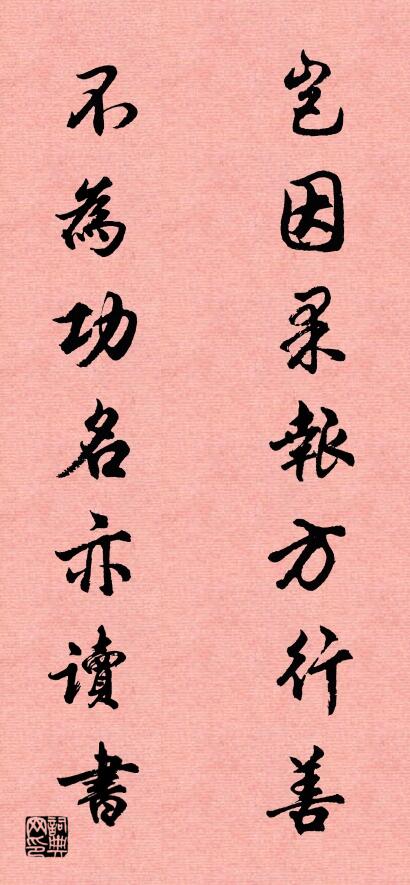 岂因果報方行善
不為功名亦讀書
詞典网印